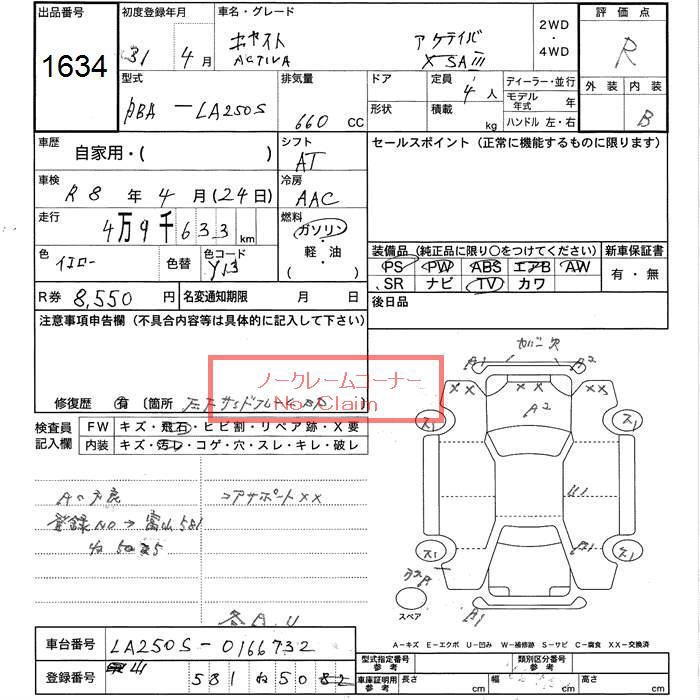 出品番号 1634
初度登録年月 31 4 月
車名・グレード キャスト アクティバ
ACTIVA X SAⅢ
2WD・4WD
評価点 R
外装 内装 B
型式 DBA - LA250S
排気量 660 CC
ドア
形状
定員 4 人
積載 kg
ディーラー・並行
モデル年式 年
ハンドル 左・右
車歴 自家用・( )
シフト AT
セールスポイント (正常に機能するものに限ります)
車検 R8 年 4 月 (24日)
冷房 AAC
走行 4万9千633 km
燃料 ガソリン・軽・油 ( )
色 イエロー
色替
色コード Y13
装備品 (純正品に限り○をつけてください)
PS PW ABS エアB AW
SR ナビ TV カワ
新車保証書 有・無
R券 8,550 円
名変通知期限 月 日
後日品
注意事項申告欄 (不具合内容等は具体的に記入して下さい)
ノークレームコーナー
No Claim
修復歴 有 〔箇所
検査員記入欄
FW キズ・飛石・ヒビ割・リペア跡・X要
内装 キズ・汚レ・コゲ・穴・スレ・キレ・破レ
カバー欠
A1 A2
XX XX XX
A2
ス1 ス1
B1
ス1 B1 ス1
コアサポートXX
登録NO→富山581
スペア
B1
A-キズ E-エクボ U-凹み W-補修跡 S-サビ C-腐食 XX-交換済
車台番号 LA250S-0166732
登録番号 581 ね 5082
型式指定番号 参考
類別区分番号 参考
車庫証明用 参考
長さ cm 幅 cm 高さ cm